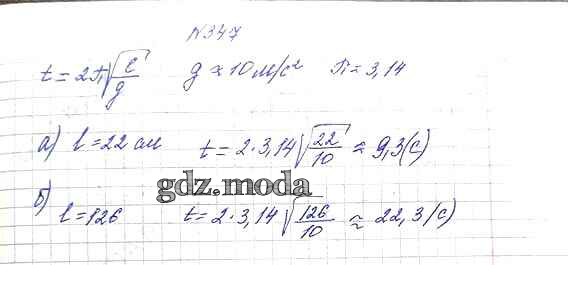 №347
t = 2π√(l/g) g ≈ 10 м/с² π = 3,14
а) l = 22 см t = 2 · 3,14 √(22/10) ≈ 9,3 (с)
gdz.moda
б) l = 126 t = 2 · 3,14 √(126/10) ≈ 22,3 (с)